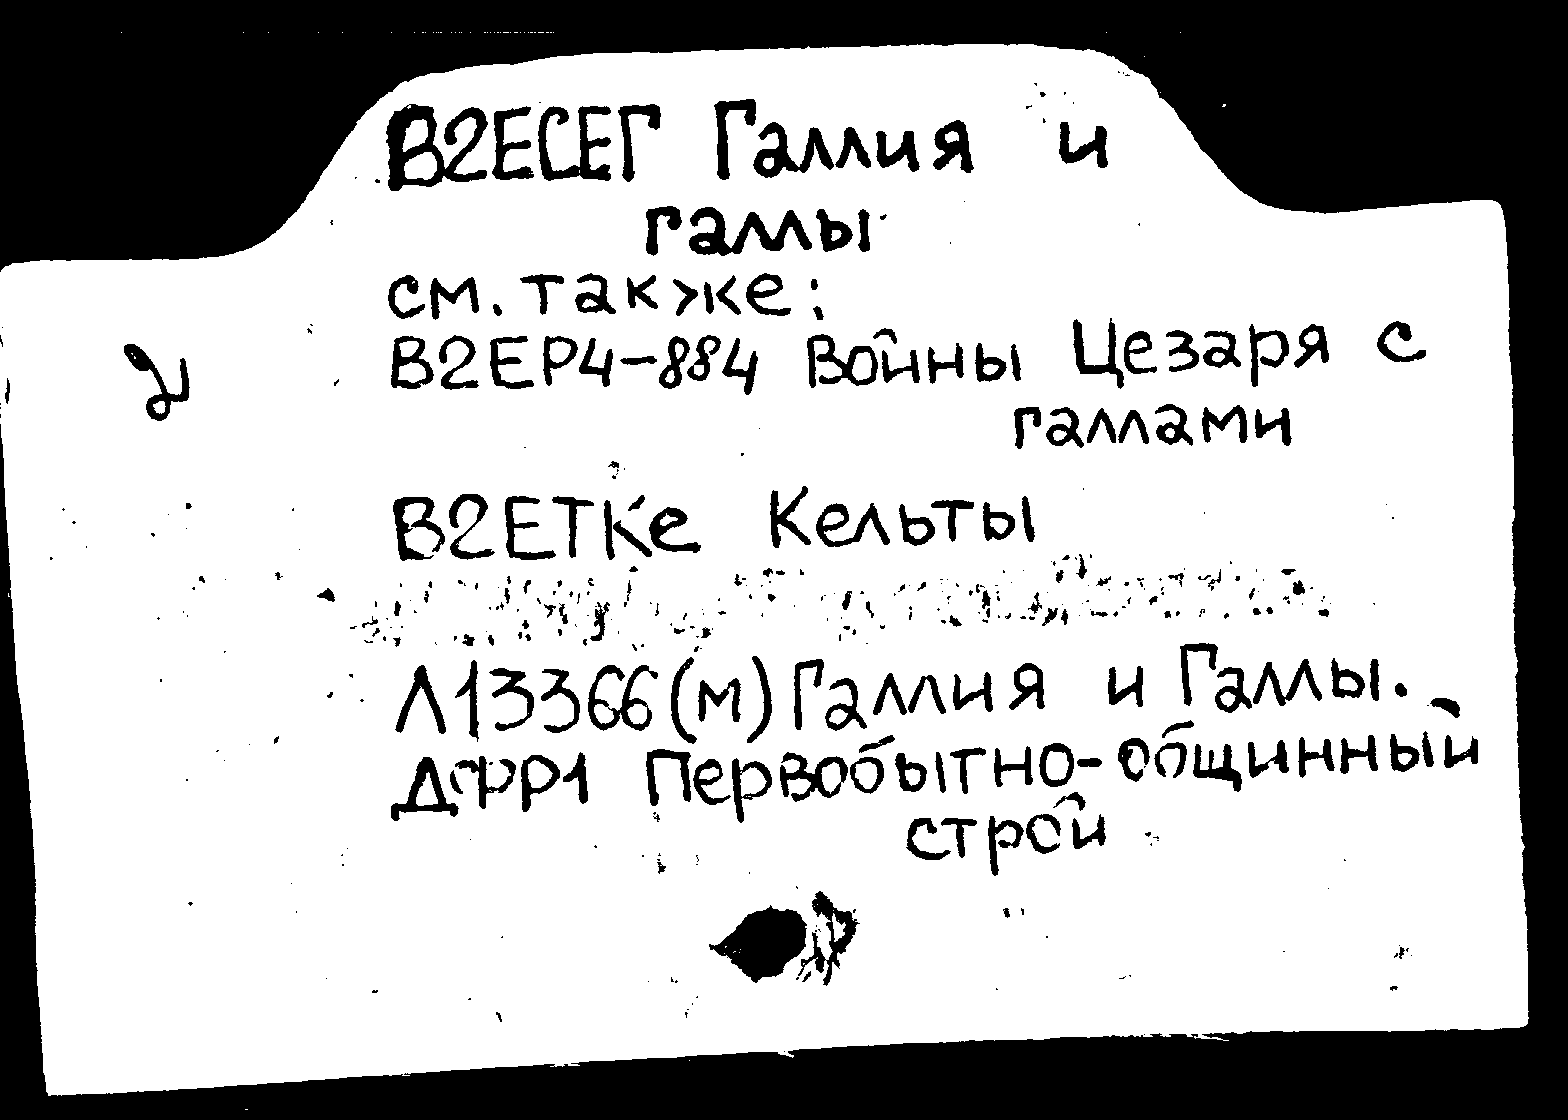 В2ЕСЕГ Галлия и
галлы
см. также:
В2ЕР4-884 Войны Цезаря с
галлами
В2ЕТКе Кельты
Л13366(м) Галлия и Галлы.
ДФРР1 Первобытно-общинный
строй